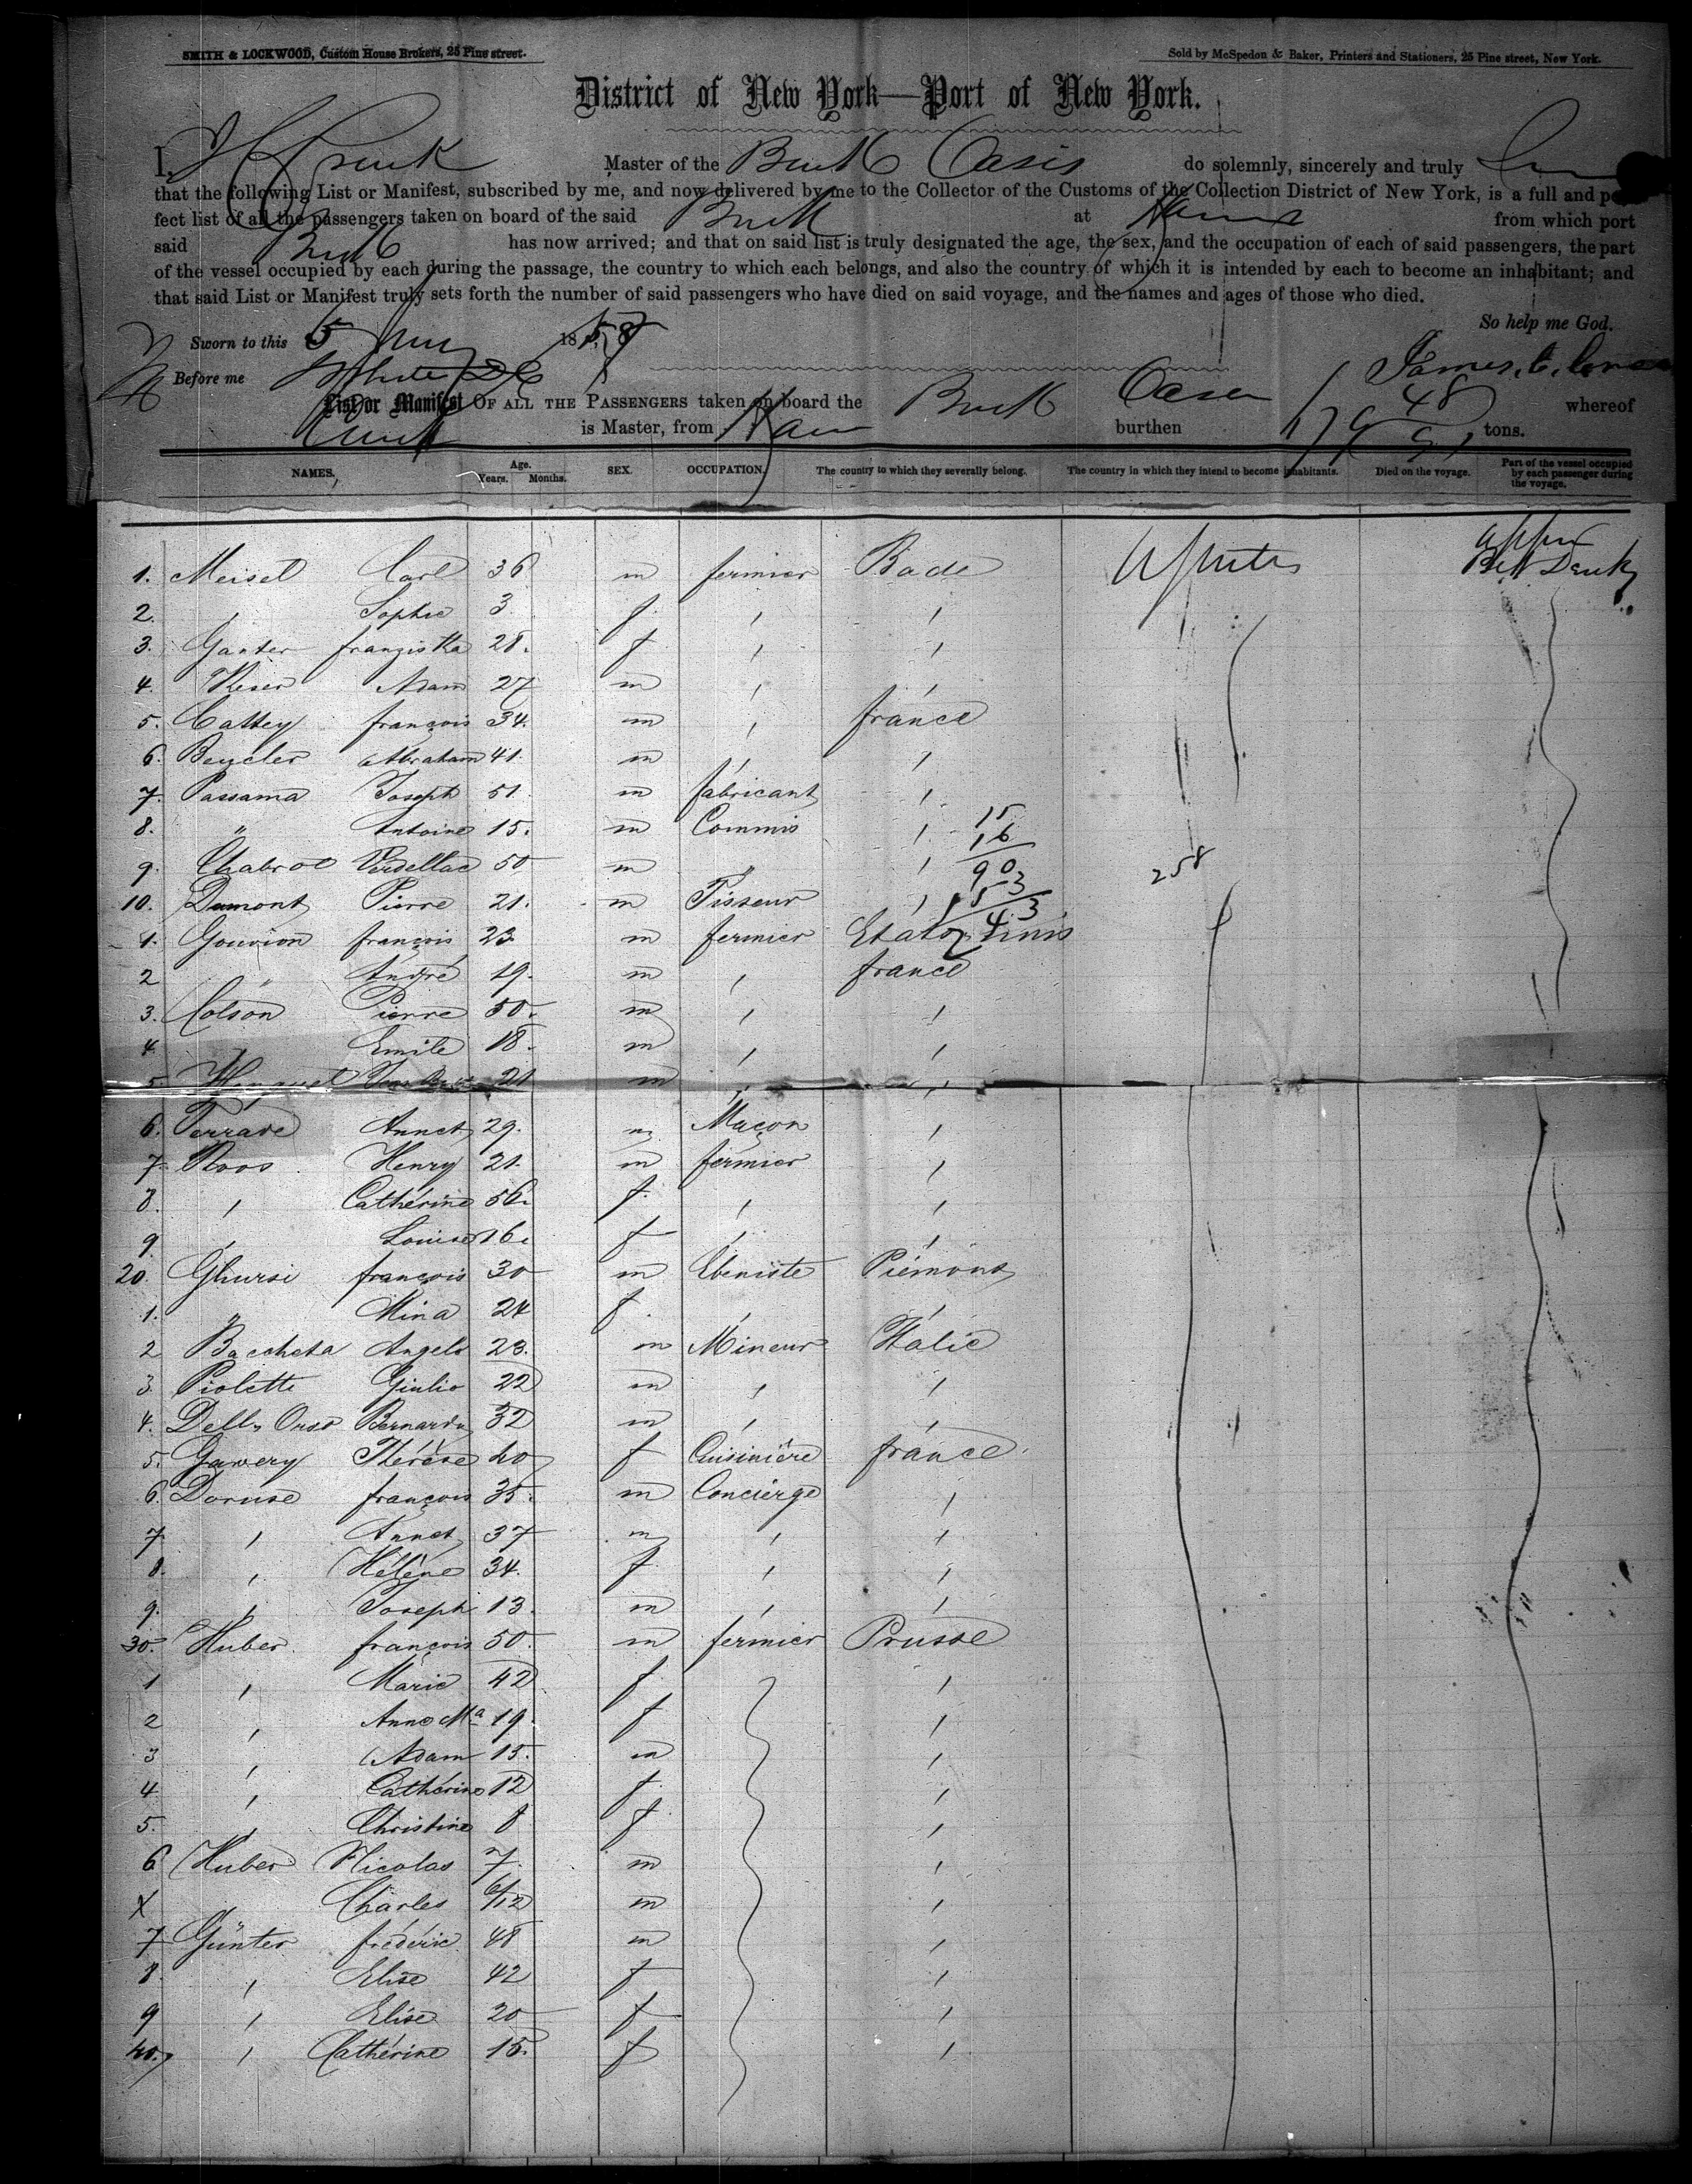 SMITH & LOCKWOOD, Custom House Brokers, 25 Pine street.
Sold by McSpedon & Baker, Printers and Stationers, 25 Pine street, New York.
District of New York—Port of New York.
I, Master of the Oasis do solemnly, sincerely and truly
that the following List or Manifest, subscribed by me, and now delivered by me to the Collector of the Customs of the Collection District of New York, is a full and per
fect list of all the passengers taken on board of the said at from which port
said has now arrived; and that on said list is truly designated the age, the sex, and the occupation of each of said passengers, the part
of the vessel occupied by each during the passage, the country to which each belongs, and also the country of which it is intended by each to become an inhabitant; and
that said List or Manifest truly sets forth the number of said passengers who have died on said voyage, and the names and ages of those who died.
So help me God.
Sworn to this 5 18
Before me James. C.
List or Manifest OF ALL THE PASSENGERS taken on board the whereof
is Master, from burthen tons.
NAMES. Age. Years. Months. SEX. OCCUPATION. The country to which they severally belong. The country in which they intend to become inhabitants. Died on the voyage. Part of the vessel occupied by each passenger during the voyage.
1. Meisel Carl 36 m fermier Bade
2. , Sophie 3 f. , ,
3. Ganter franziska 28. f. , ,
4. Adam 27 m , ,
5. Cattey françois 34. m , france
6. Beycler Abraham 41. m , ,
7. Passama Joseph 51. m fabricant ,
8. " Antoine 15. m Commis ,
15
16
9. Chabrol Verdellac 50 m " ,
90
258
10. Dumont Pierre 21. m Tisseur ,
1. Gouvion françois 23 m fermier Etats Unis
2 " André 19. m , france
3. Colson Pierre 50. m , ,
4. , Emile 18. m , ,
5 21 m , ,
6. Terrade Annet 29. m Maçon ,
7 Roos Henry 21. m fermier ,
8. , Catherine 56. f , ,
9 , Louise 16. f , ,
20. Ghursi françois 30 m Ebeniste Piémont
1. " Mina 24 f. , ,
2 Baccheta Angelo 23. m Mineur Italie
3. Piolette Giulio 22 m , ,
4. Dell Orso Bernardu 32 m , ,
5. Gavery Thérèse 40 f Cuisinière france
6. Doruse françois 35. m Concierge ,
7 , Annet 37 m , ,
8. , Hélène 34. f , ,
9. , Joseph 13. m , ,
30. Huber françois 50. m fermier Prusse
1 , Marie 42 f ,
2 , Anne Ma 19. f ,
3 , Adam 15. m ,
4 , Catherine 12 f. ,
5. , Christine 8 f ,
6 Huber Nicolas 7. m ,
X " Charles 6/12 m ,
7 Günter fréderic 48 m ,
8. , Elise 42 f ,
9 , Elise 20 f ,
40. , Catherine 15. f ,